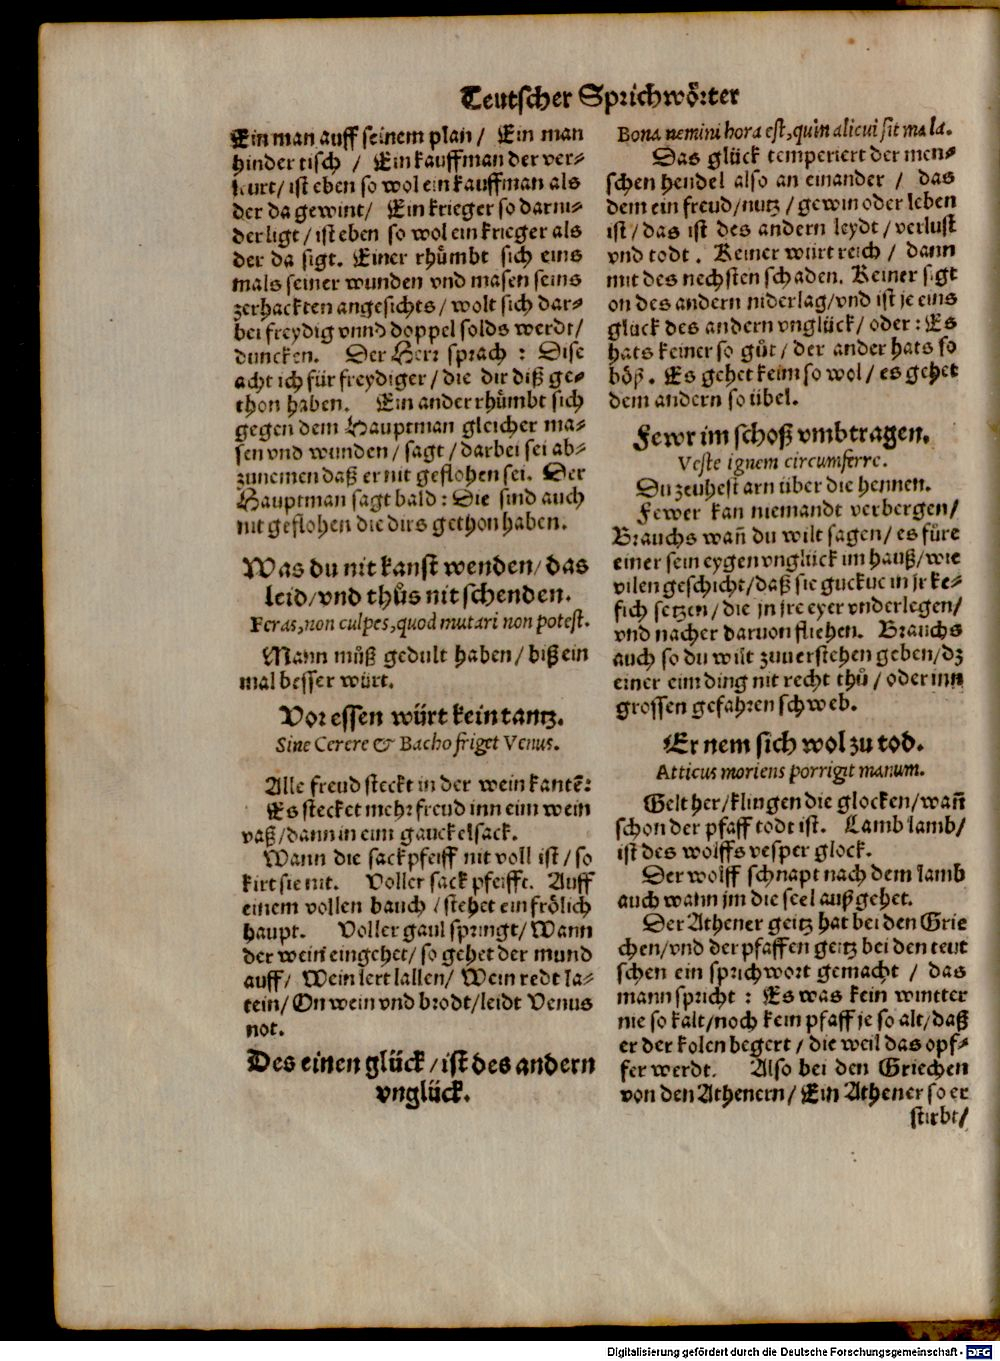 Teutscher Sprichwoͤrter
Ein man auff seinem plan / Ein man
hinder tisch / Ein kauffman der ver-
leurt / ist eben so wol ein kauffman als
der da gewint / Ein krieger so darni-
derligt / ist eben so wol ein krieger als
der da sigt. Einer rhuͦmbt sich eins
mals seiner wunden vnd masen seins
zerhackten angesichts / wolt sich dar-
bei freydig vnnd doppel solds werdt /
duncken. Der Herr sprach : Dise
acht ich für freydiger / die dir diß ge-
thon haben. Ein ander rhuͦmbt sich
gegen dem Hauptman gleicher ma-
sen vnd wunden / sagt / darbei sei ab-
zunemen daß er nit geflohen sei. Der
Hauptman sagt bald : Die sind auch
nit geflohen die dirs gethon haben.
Was du nit kanst wenden / das
leid / vnd thuͦs nit schenden.
Feras, non culpes, quod mutari non potest.
Mann muͦß gedult haben / biß ein
mal besser würt.
Vor essen würt kein tantz.
Sine Cerere & Bacho friget Venus.
Alle freud steckt in der wein kantē:
Es stecket mehr freud inn eim wein
vaß / dann in eim gauckelsack.
Wann die sackpfeiff nit voll ist / so
kirt sie nit. Voller sack pfeifft. Auff
einem vollen bauch / stehet ein froͤlich
haupt. Voller gaul springt / Wann
der wein eingehet / so gehet der mund
auff / Wein lert lallen / Wein redt la-
tein / On wein vnd brodt / leidt Venus
not.
Des einen glück / ist des andern
vnglück.
Bona nemini hora est, quin alicui sit mala.
Das glück temperiert der men-
schen hendel also an einander / das
dem ein freud / nutz / gewin oder leben
ist / das ist des andern leydt / verlust
vnd todt. Keiner würt reich / dann
mit des nechsten schaden. Keiner sigt
on des andern niderlag / vnd ist je eins
glück des andern vnglück / oder : Es
hats keiner so guͦt / der ander hats so
boͤß. Es gehet keim so wol / es gehet
dem andern so übel.
Fewr im schoß vmbtragen.
Veste ignem circumferre.
Du zeuhest arn über die hennen.
Fewer kan niemandt verbergen /
Brauchs wañ du wilt sagen / es fuͤre
einer sein eygen vnglück im hauß / wie
vilen geschicht / daß sie guckuc in jr ke-
fich setzen / die jn jre eyer vnderlegen /
vnd nacher daruon fliehen. Brauchs
auch so du wilt zuuerstehen geben / dz
einer eim ding nit recht thuͦ / oder inn
grossen gefahren schweb.
Er nem sich wol zu tod.
Atticus moriens porrigit manum.
Gelt her / klingen die glocken / wañ
schon der pfaff todt ist. Lamb lamb /
ist des wolffs vesper glock.
Der wolff schnapt nach dem lamb
auch wann jm die seel außgehet.
Der Athener geitz hat bei den Grie
chen / vnd der pfaffen geitz bei den teut
schen ein sprichwort gemacht / das
mann spricht : Es was kein wintter
nie so kalt / noch kein pfaff je so alt / daß
er der kolen begert / die weil das opf-
fer werdt. Also bei den Griechen
von den Athenern / Ein Athener so er
stirbt /
Digitalisierung gefördert durch die Deutsche Forschungsgemeinschaft - DFG